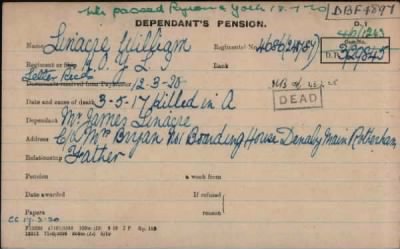 passed Ryson & York 18.7.20 DBF 8897
DEPENDANT'S PENSION.
D.1
46/1263
Name Linacre William Regimental No. 4686(241187) D.1. 329845
Regiment or K.O.Y.L.I. Rank
Letter Recd
Documents received from Paymaster 12-3-20
DEAD
Date and cause of death 3-5-17 Killed in A
Dependant Mr. James Linacre
Address C/o Mrs Bryan Boarding House Denaby Main Rotherham
Relationship Father
Pension a week from
Date awarded If refused
Papers reason
CC 17.3.20